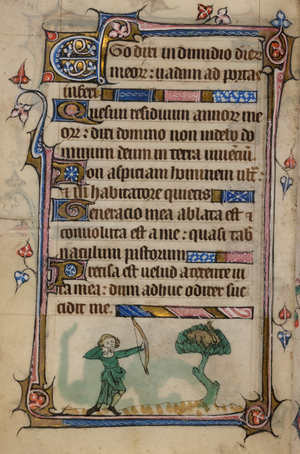 Ego dixi in dimidio dier
meor : uadam ad portas
inferi
Quesiui residuum annor me
or : dixi domino non uidebo do
minum deum in terra uiuenciū
Non aspiciam hominem ult
et habitatorē quietis
Generacio mea ablata est et
conuoluta est a me : quasi tab
naculum pastorum
Precisa est uelud a texente ui
ta mea : dum adhuc ordirer suc
cidit me.